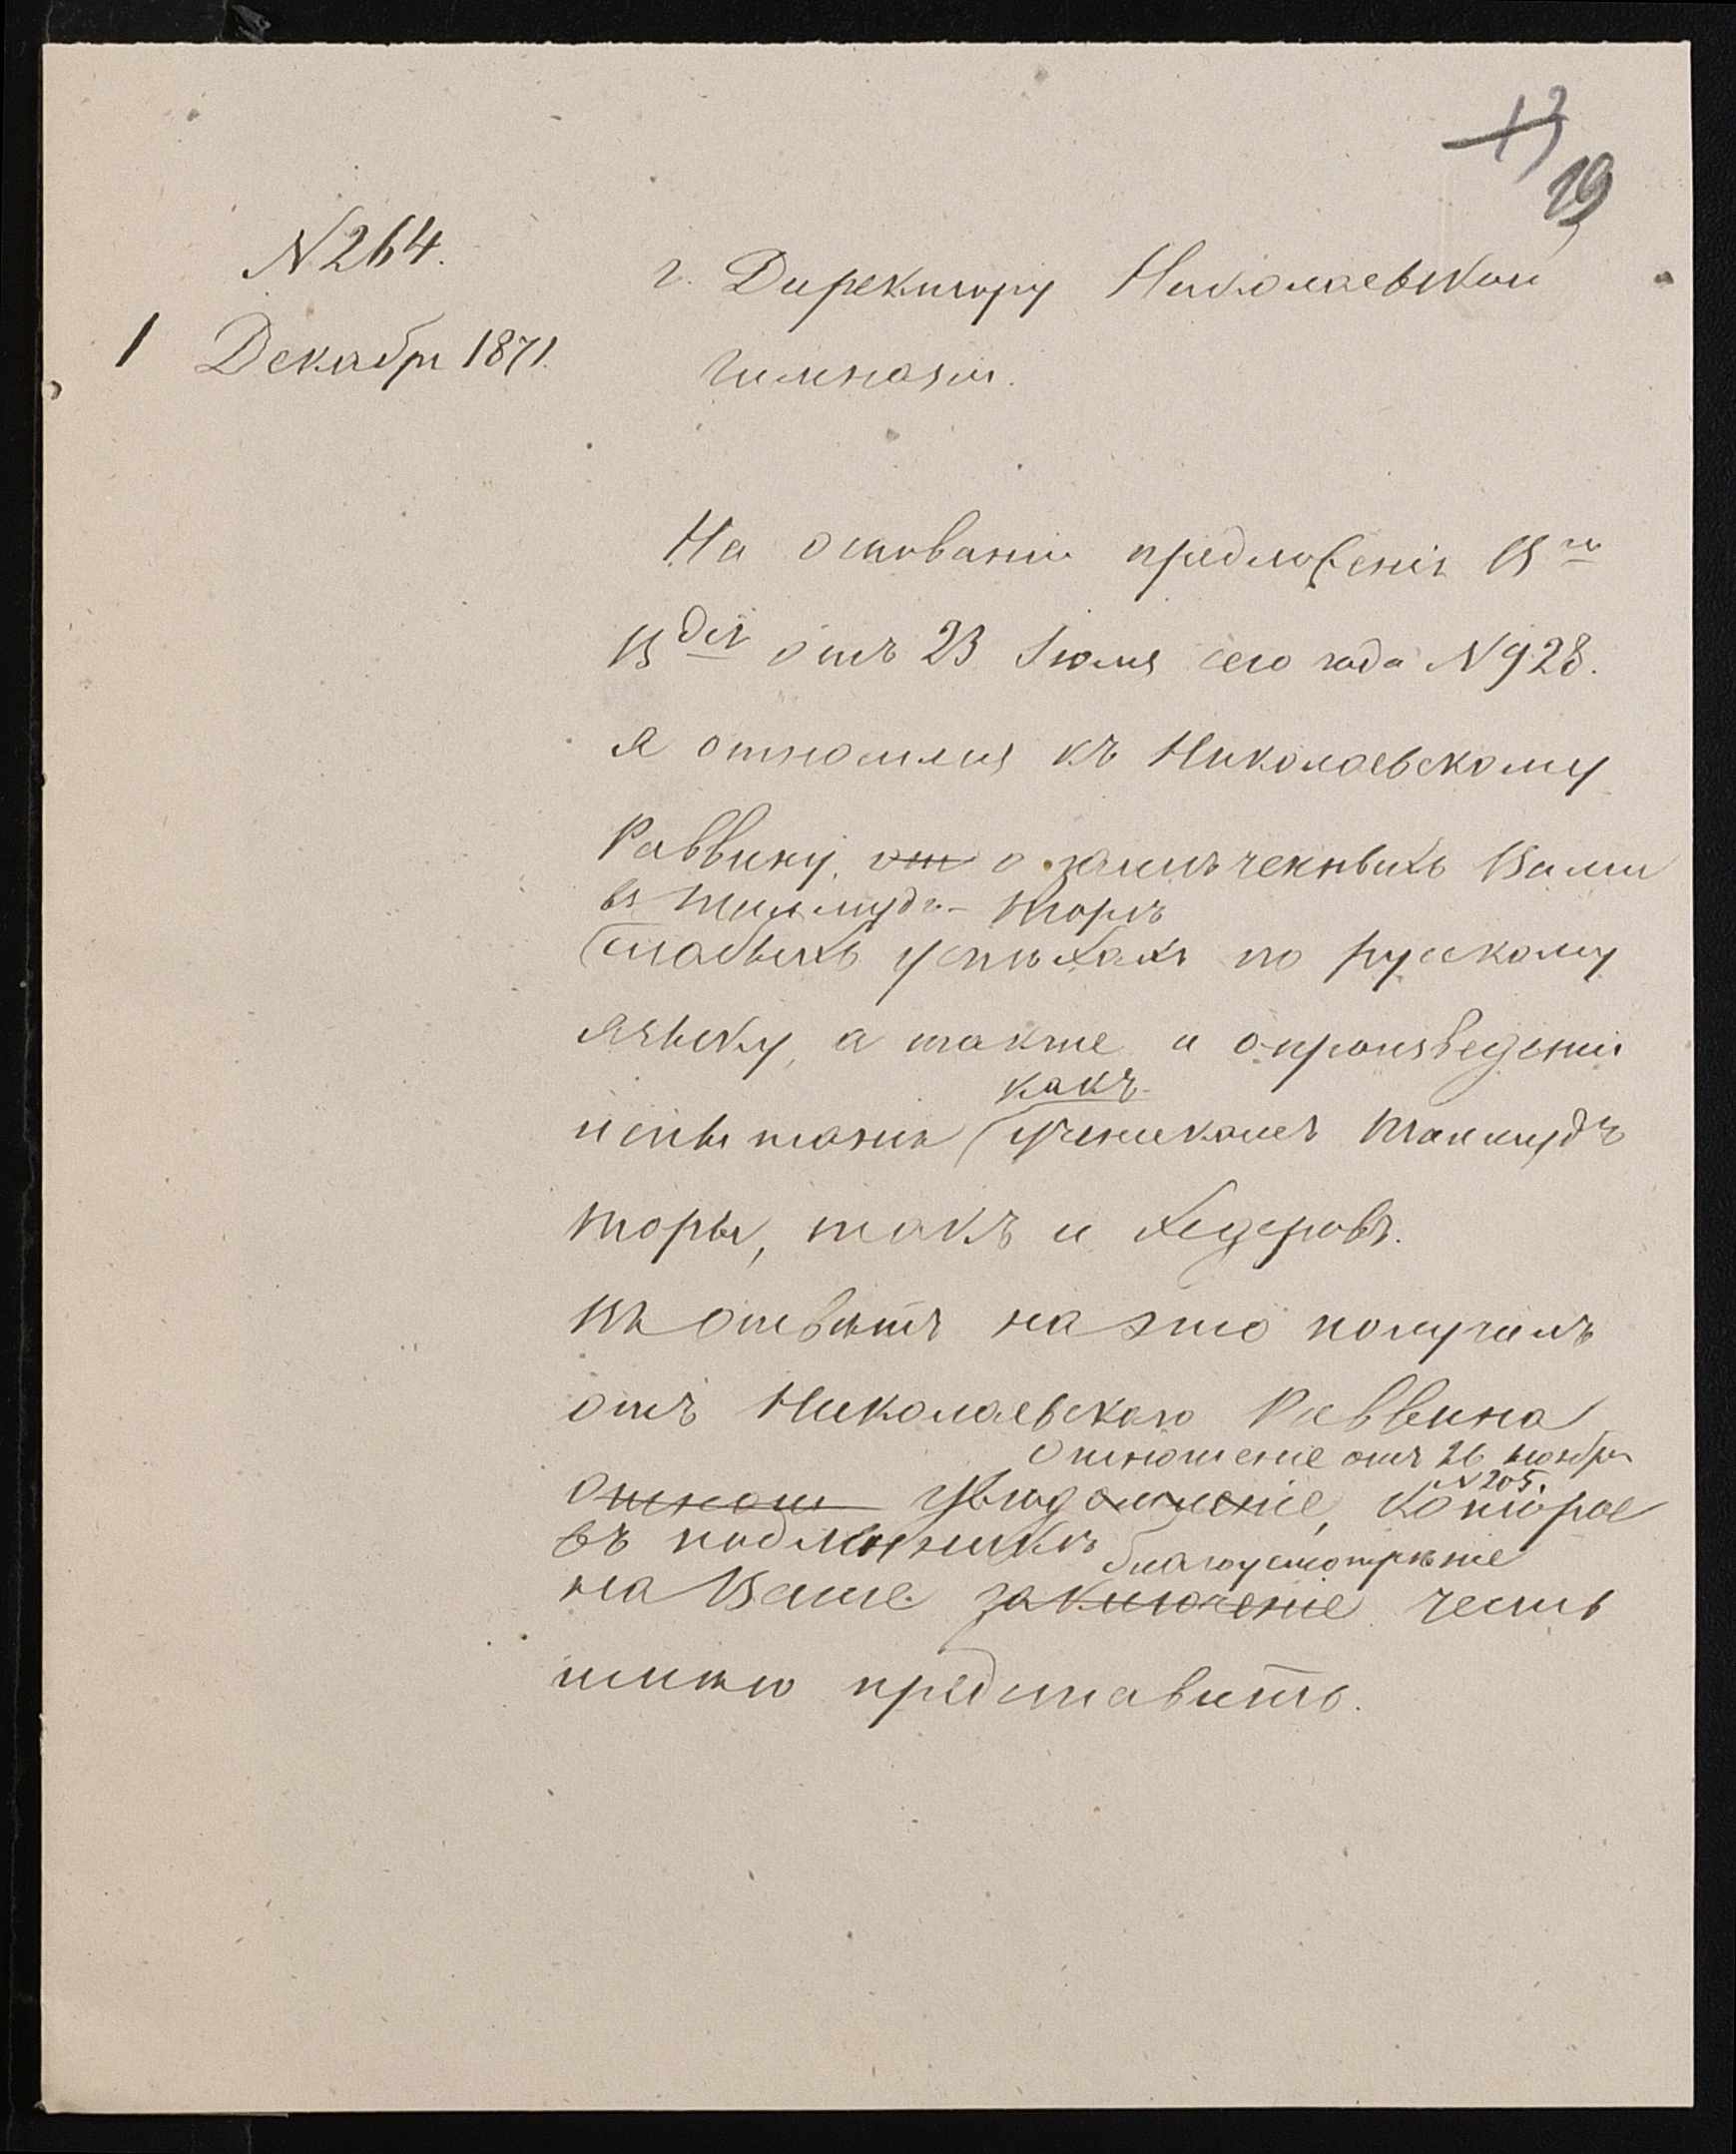 13
19
N 264.
1 Декабря 1871.
г. Директору Николаевской
Гимназіи.
На основаніи предложенія В го
В дія отъ 23 Іюля сего года N 928.
я относился къ Николаевскому
Раввину, от о замѣченныхъ Вами
въ Талмудъ-Торѣ
слабыхъ успѣхахъ по русскому
языку, а также и о произведеніи
какъ
испытанія ученикамъ Талмудъ
Торы, такъ и Хедеровъ.
Въ отвѣтъ на это получилъ
отъ Николаевскаго Раввина
Отношеніе отъ 26 Ноября
N 205.
Отнош увѣдомленіе, которое
въ подлинникѣ благоусмотрѣніе
на Ваше заключеніе честь
имѣю представить.